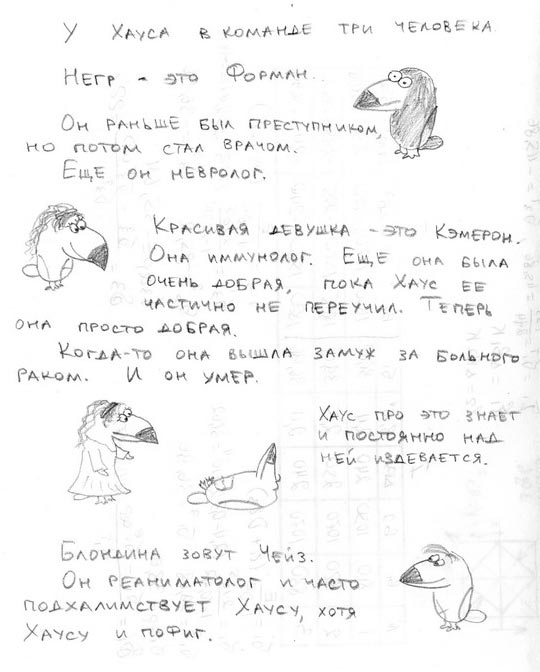 У Хауса в команде три человека
Негр - это Форман.
Он раньше был преступником,
но потом стал врачом.
Еще он невролог.
Красивая девушка - это Кэмерон.
Она иммунолог. Еще она была
очень добрая, пока Хаус ее
частично не переучил. Теперь
она просто добрая.
Когда-то она вышла замуж за больного
раком. И он умер.
Хаус про это знает
и постоянно над
ней издевается.
Блондина зовут Чейз.
Он реаниматолог и часто
подхалимствует Хаусу, хотя
Хаусу и пофиг.